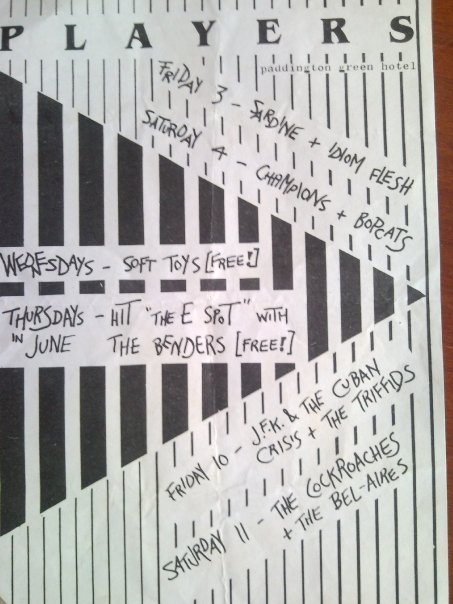 PLAYERS
paddington green hotel
FRIDAY 3 - SARDINE + IDIOM FLESH
SATURDAY 4 - CHAMPIONS + BOPCATS
WEDNESDAYS - SOFT TOYS [FREE!]
THURSDAYS - HIT "THE E SPOT" WITH
IN JUNE THE BENDERS [FREE!]
FRIDAY 10 - J.F.K. & THE CUBAN
CRISIS + THE TRIFFIDS
SATURDAY 11 - THE COCKROACHES
+ THE BEL-AIRES